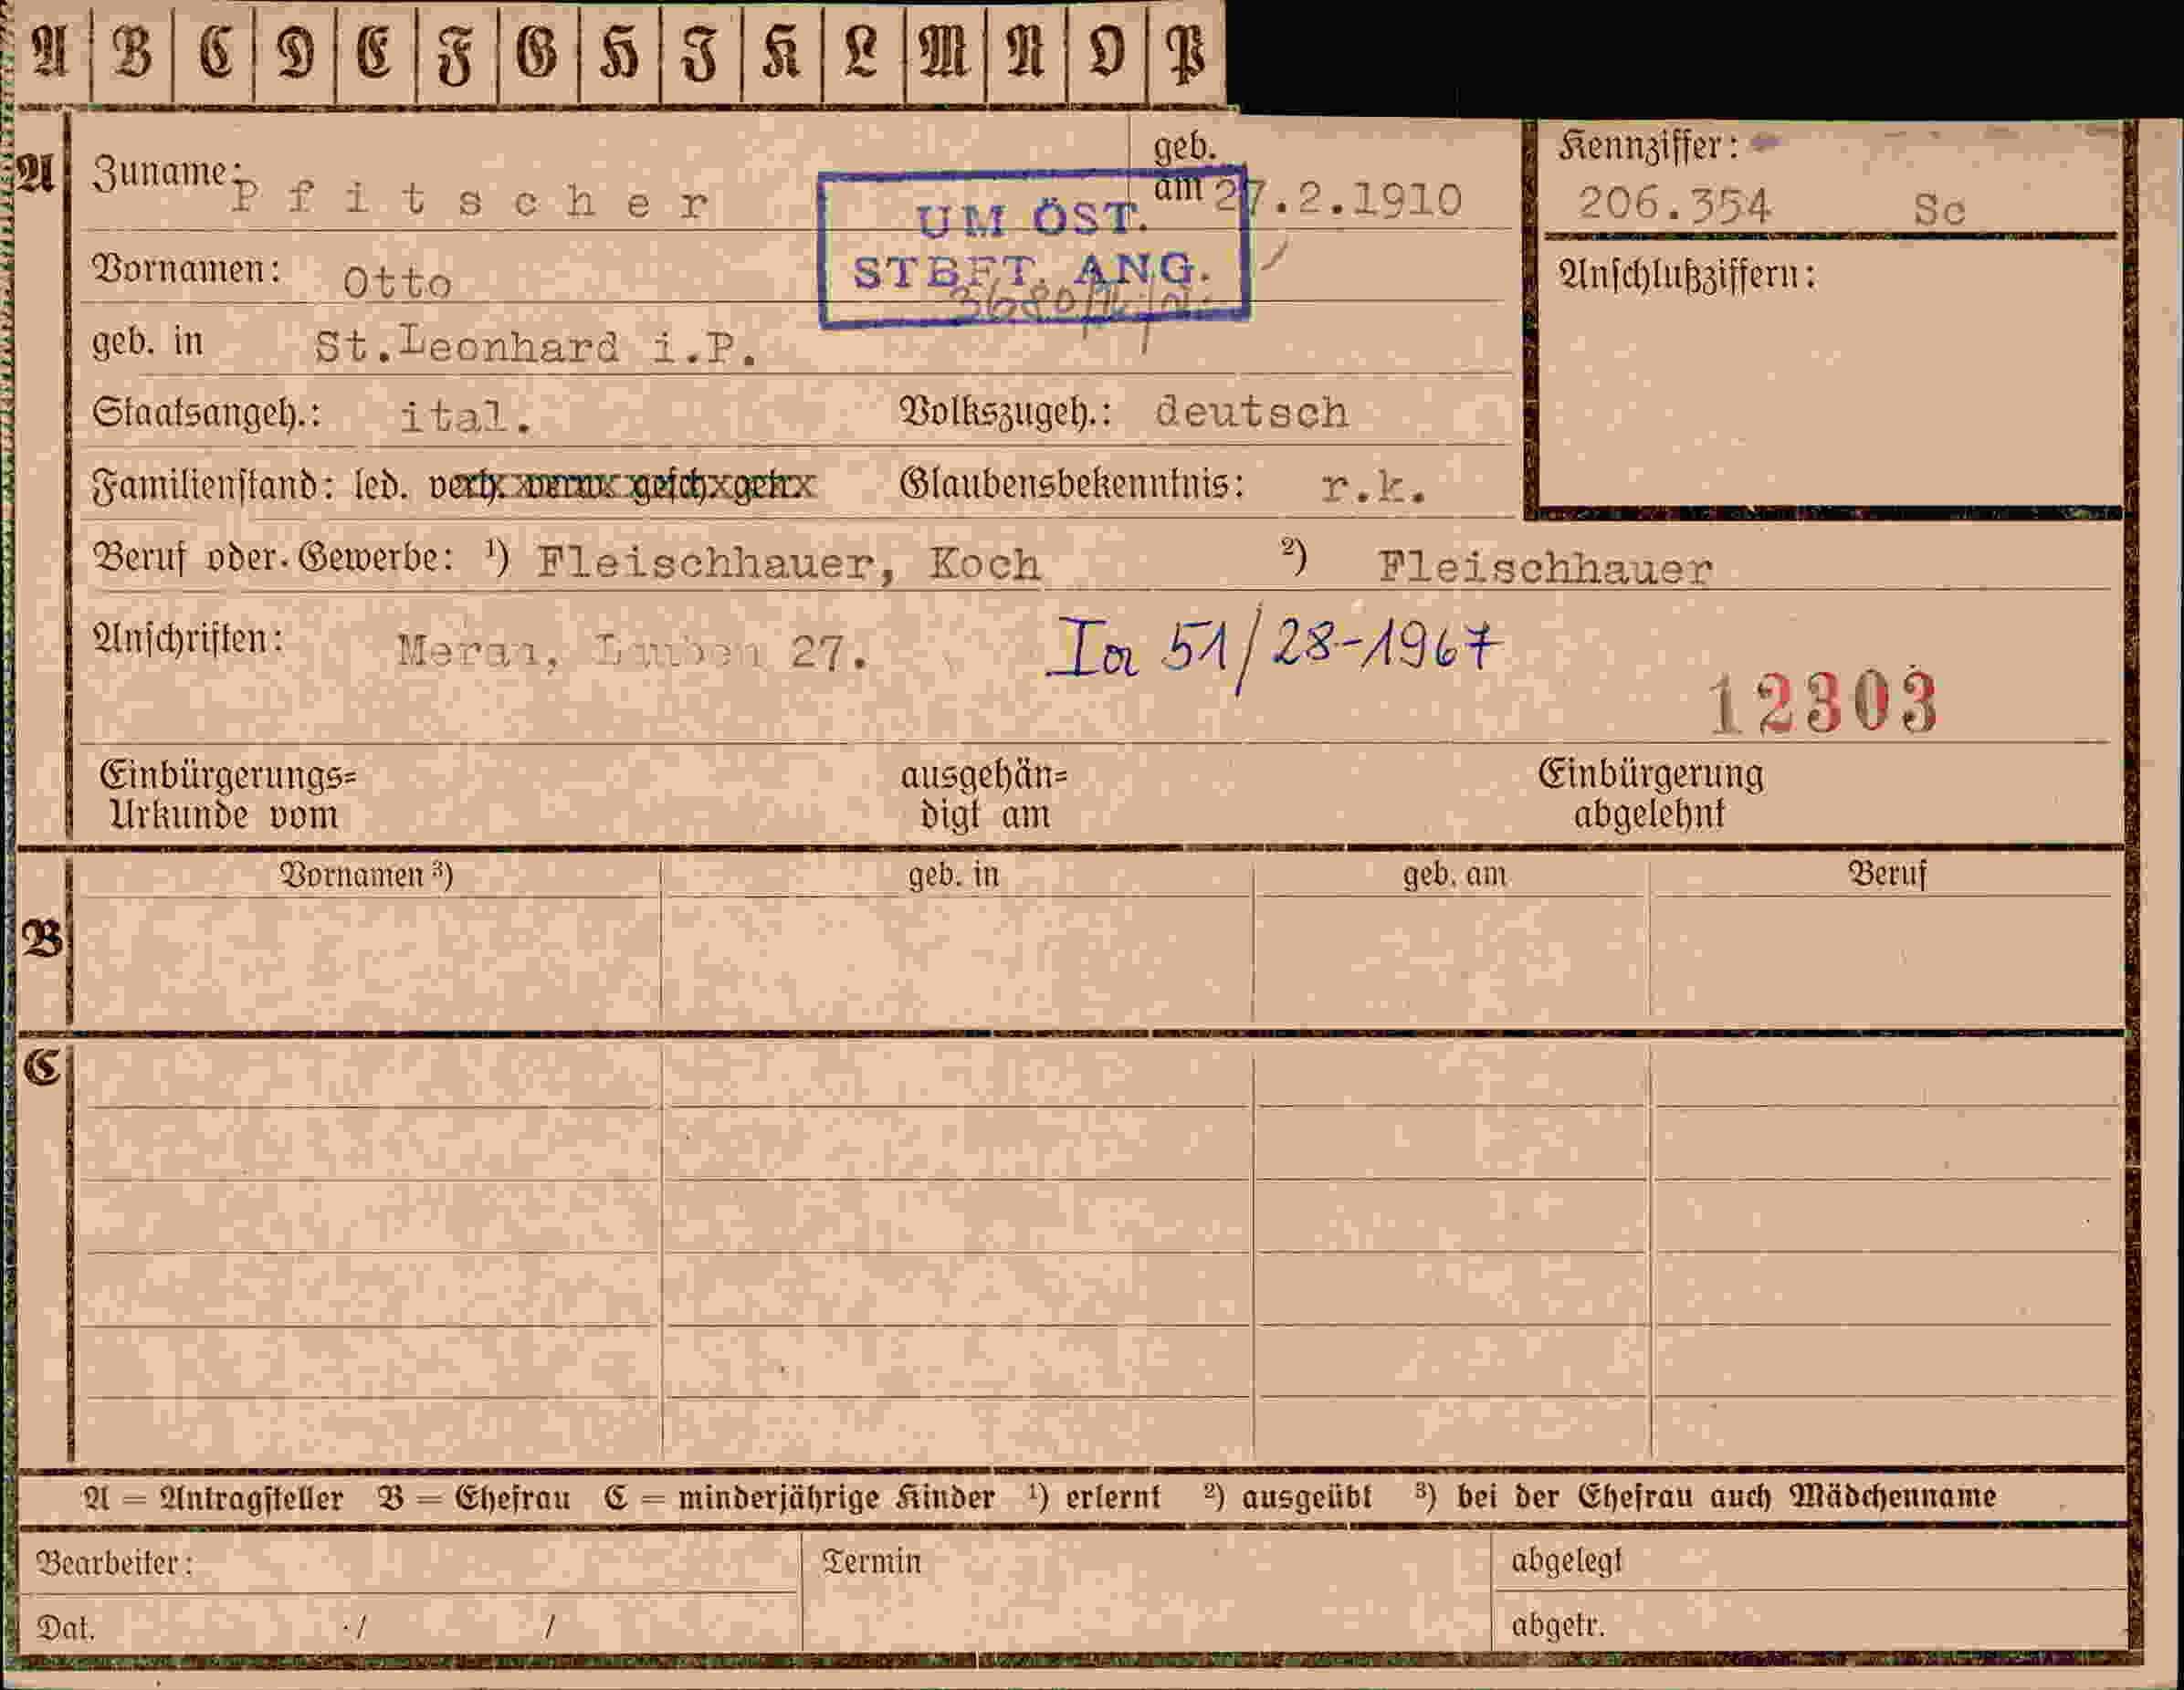 A B C D E F G H I K L M N O P
A
Zuname: Pfitscher
geb. am 27.2.1910
Kennziffer:
206.354 Sc
UM ÖST.
STBFT. ANG.
Vornamen: Otto
Anschlußziffern:
geb. in St.Leonhard i.P.
Staatsangeh.: ital. Volkszugeh.: deutsch
Familienstand: led. verh. verw. gesch. getr. Glaubensbekenntnis: r.k.
Beruf oder Gewerbe: ¹) Fleischhauer, Koch ²) Fleischhauer
Anschriften: Meran, Lauben 27. Ia 51/28-1967
12303
Einbürgerungs= ausgehän= Einbürgerung
Urkunde vom digt am abgelehnt
B
Vornamen ³) geb. in geb. am Beruf
C
A = Antragsteller B = Ehefrau C = minderjährige Kinder ¹) erlernt ²) ausgeübt ³) bei der Ehefrau auch Mädchenname
Bearbeiter: Termin abgelegt
Dat. / / abgetr.